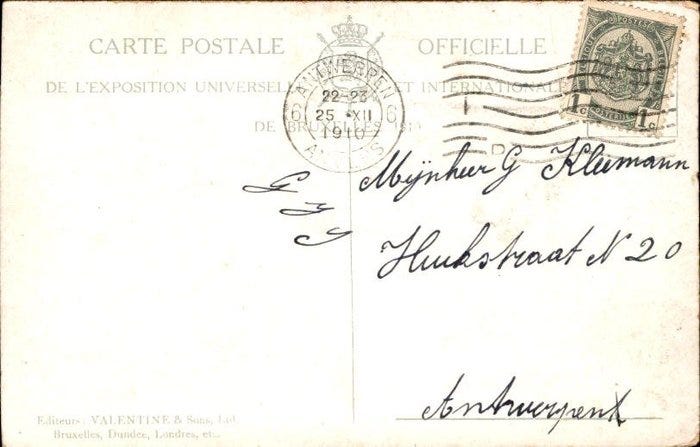 CARTE POSTALE OFFICIELLE
DE L'EXPOSITION UNIVERSELLE ET INTERNATIONALE
DE BRUXELLES
ANTWERPEN
6 22-23 6
25 XII
1910
ANVERS
POSTES
1c 1c
POSTERIJEN
Mijnheer G Kleemann
G
Y
Y
Huikstraat N 20
Antwerpen
Editeurs: VALENTINE & Sons, Ltd
Bruxelles, Dundee, Londres, etc.